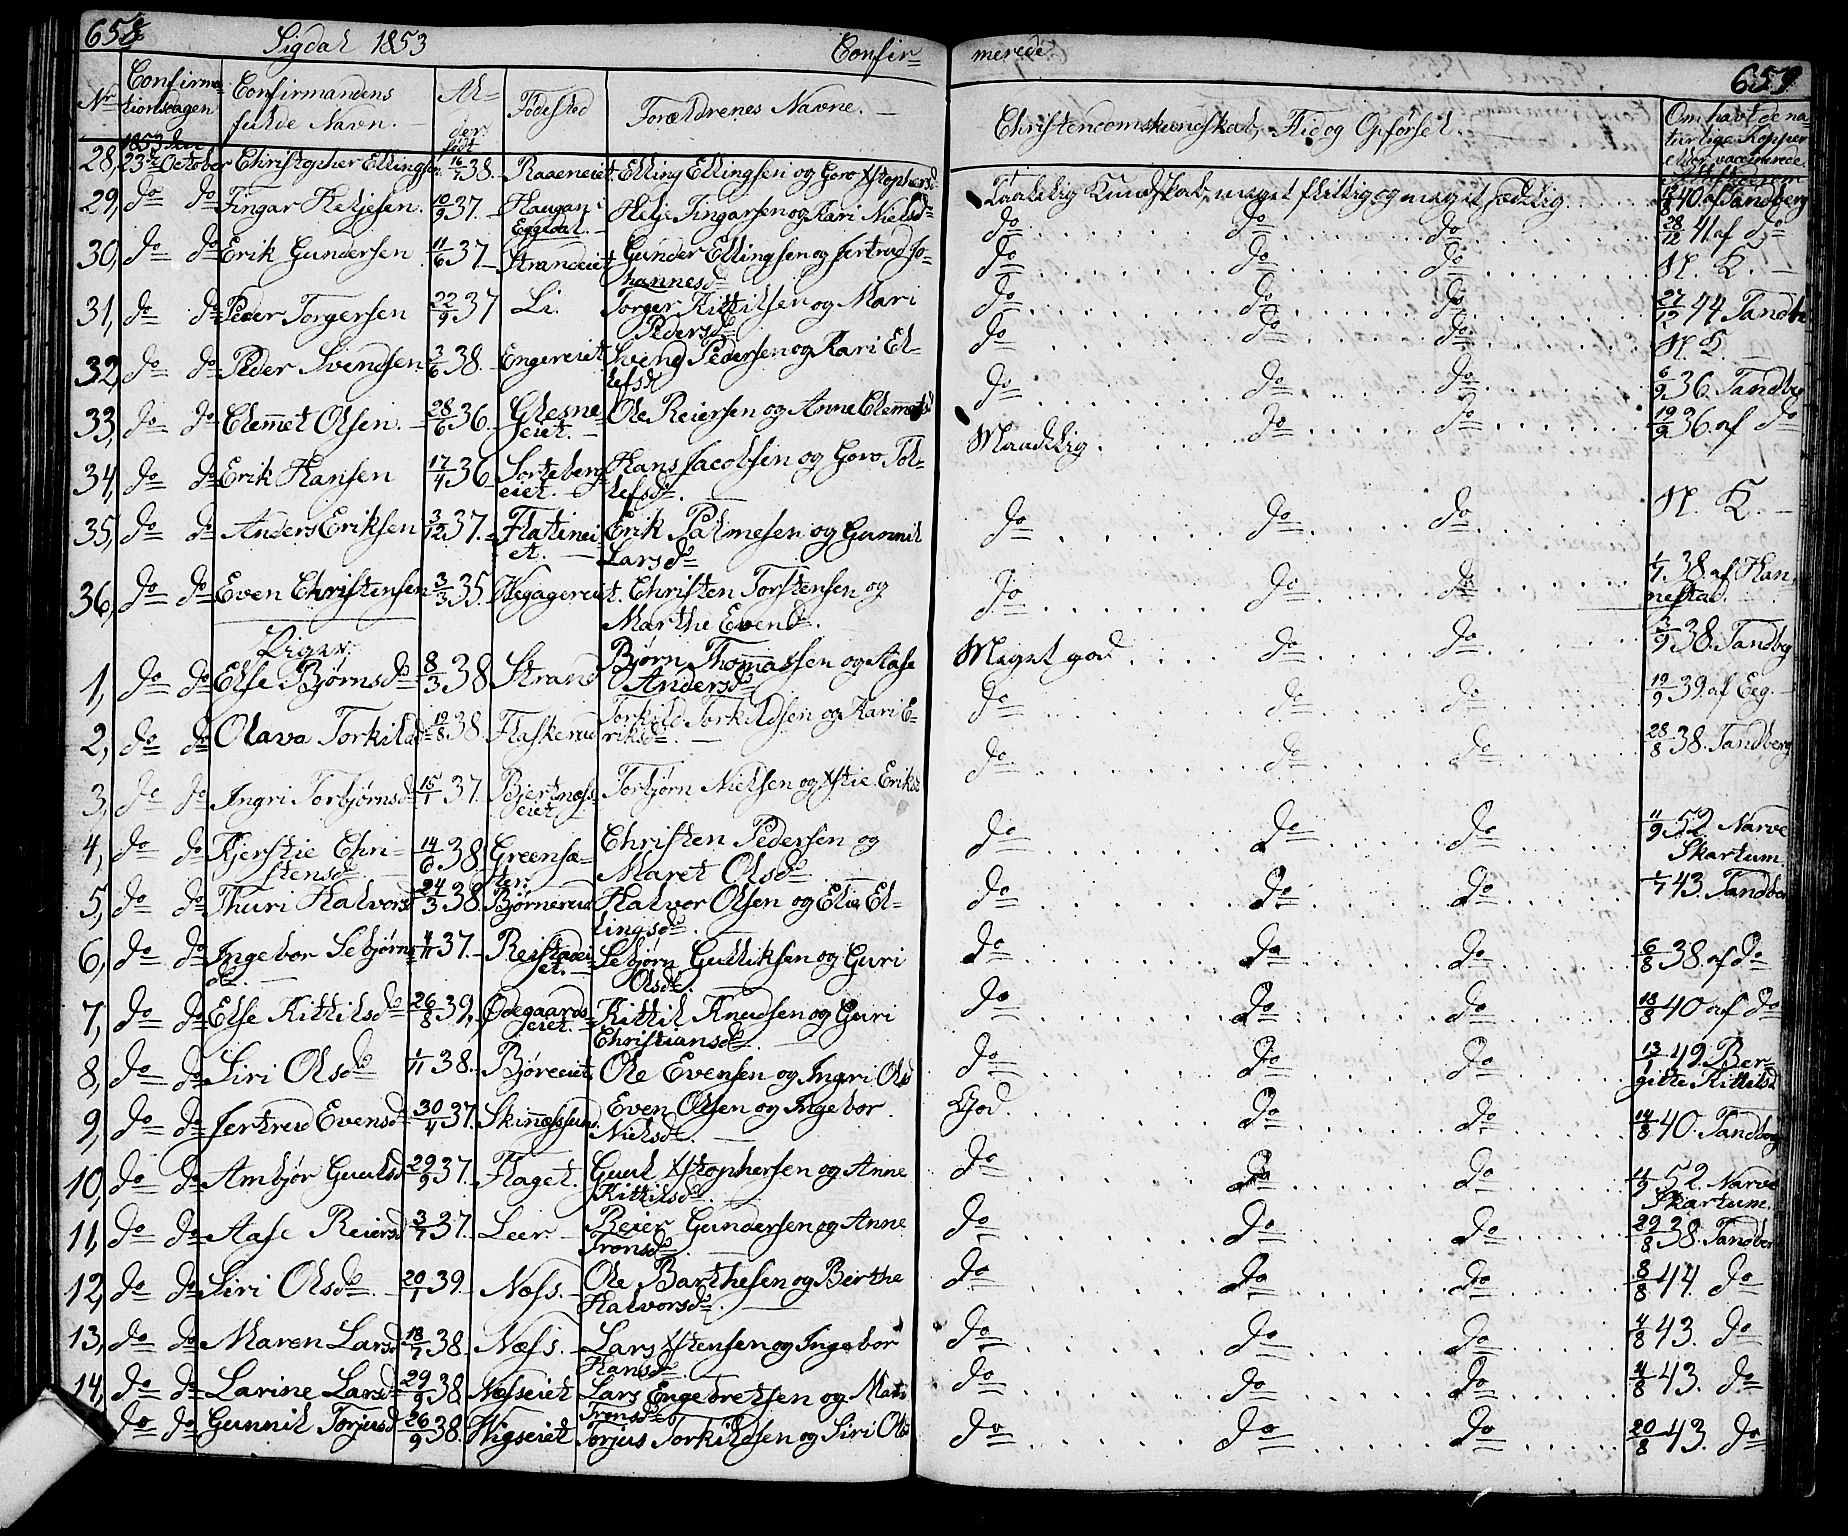 658 Sigdal 1853 Confir=
Nr Confirma-tionsdagen Confirmandens fulde Navn. Al-der født Fødested Forældrenes Navne.
1853 den
28, 23de October Christopher Ellingsen 16/7 38. Raaeneiet. Elling Ellingsen og Goro Xstophersd
29, do do Fingar Heljesen. 10/9 37. Haugan Eggedal. Helje Fingarsen og Kari Nielsd
30, do do Erik Gundersen 11/6 37. Strandeiet Gunder Ellingsen og Jertrud Jo-
hannesd
31, do do Peder Torgersen 22/9 37 Li. Torger Kittilsen og Mari
Pedersd
32, do do Peder Svendsen 3/6 38. Engereiet Svend Pedersen og Kari El-
lefsd
33, do do Clemmet Olsen. 28/6 36. Glesne eiet. Ole Reiersen og Anne Clemmetsd
34, do do Erik Hansen 17/4 36 Sorteberg eiet. Hans Jacobsen og Goro Tol-
lefsd.
35, do do Anders Eriksen 3/12 37. Flatinei et. Erik Palmesen og Gunnil
Larsd
36, do do Even Christensen 3/3 35. Hegagereiet. Christen Torstensen og
Marthe Evend.
Piger.
1, do do Else Bjørnsd 8/3 38 Strand Bjørn Thomassen og Aase
Andersd
2, do do Olava Torkilsd 19/8 38. Flaskerud Torkild Torkildsen og Kari E-
riksd.
3, do do Ingri Torbjørnsd 15/1 37. Bjertnæss eiet Torbjørn Nielsen og Xstie Eriksd
4, do do Kjerstie Chri-stensd 14/6 38. Greensæ-ter. Christen Pedersen og
Maret Olsd
5, do do Thuri Halvorsd 24/3 38. Bjørnerud Halvor Olsen og Elie El-
lingsd.
6, do do Ingebor Sebjørns d. 4/11 37. Reistadei et. Sebjørn Gulliksen og Guri
Olsd.
7, do do Else Kittilsd 26/8 39, Ødegaards eiet. Kittil Knudsen og Guri
Christiansd
8, do do Siri Olsd 1/11 38. Bjøreeiet Ole Evensen og Ingri Olsd
9, do do Jertrud Evensd 30/4 37. Skinnessund. Even Olsen og Ingebor
Nielsd.
10, do do Ambjør Gulsd 29/9 37. Flaget. Guul Xstophersen og Anne
Kittilsd.
11, do do Aase Reiersd 3/7 37. Leer Reier Gundersen og Anne
Tronsd
12, do do Siri Olsd. 20/1 39. Næss. Ole Barthesen og Birthe
Halvorsd.
13, do do Maren Larsd 18/7 38. Næss. Lars Xstensen og Ingebor
Hansd
14, do do Larine Larsd 29/9 38 Næsseiet Lars Engebretsen og Mari
Tronsd
do do Gunnil Torjusd 26/9 38. Vigseiet Torjus Torkildsen og Siri Olsd
merede 659
Christendomskundskab, Flid og Opførsel. Om havt de na-
turlige Kopper
eller vaccinerede
Taalelig Kundskab, meget flittig og meget sædelig. 12/8 40. af Tandberg
do do do 28/12 41 af do
do do do N. K.
do do do 27/12 44 Tandb
do do do N. K.
do do do 6/9 36. Tandbg
Maadelig. do do 19/9 36. af do
do do do N. K.
do do do 1/7 38. af Han-
nestad.
Meget god do do 3/9 38. Tandbg
do do do 19/9 39. af Eeg.
do do do 28/8 38. Tandberg
do do do 11/9 52 Narve
Skartum.
do do do 1/7 43. Tandber
do do do 6/8 38 af do
do do do 18/8 40 af do
do do do 13/1 49. Ber-
gitte Kittelsd
God. do do 14/8 40. Tandbg
do do do 11/9 52. Narve
Skartum.
do do do 29/8 38. Tandber
do do do 8/8 44. do
do do do 4/8 43. do
do do do 4/8 43. do
do do do 20/8 43. do